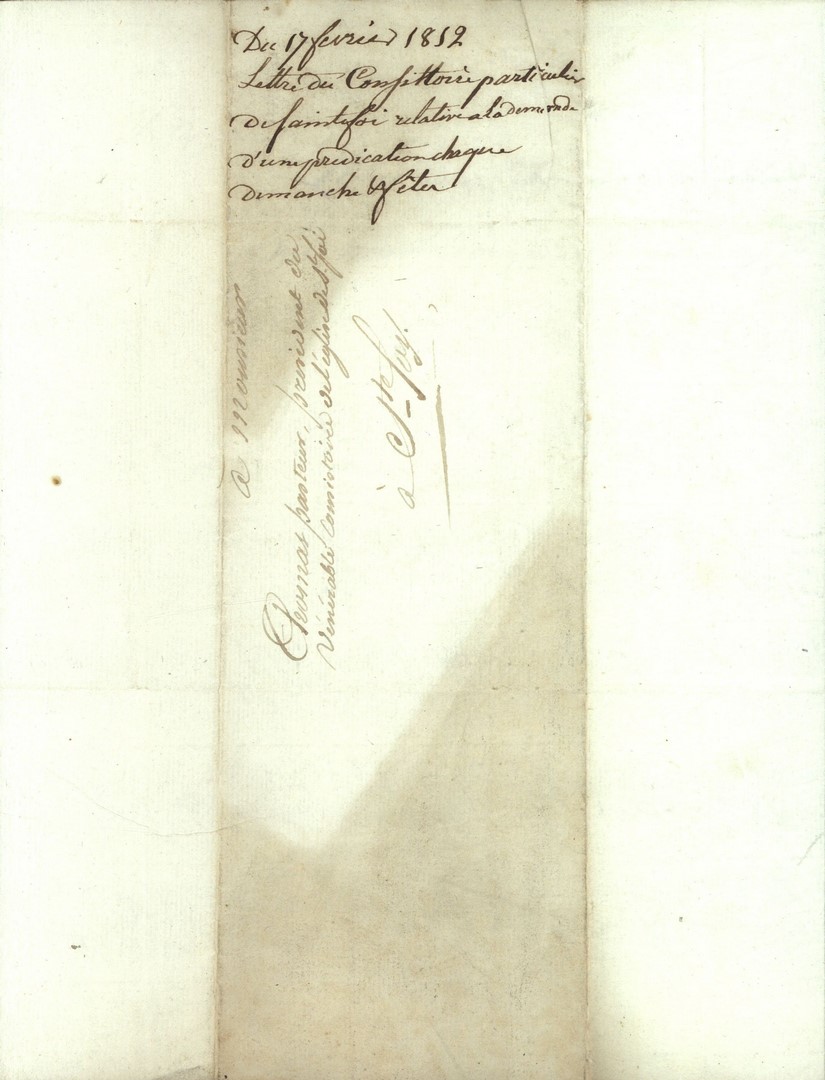 Du 17 fevrier 1812
Lettre du Consistoire particulier
De sainte foi relative a la demande
d'une predication chaque
Dimanche & fêtes
A Monsieur
pasteur, président du
Vénérable Consistoire de l'église de Ste foi
à Ste foy.